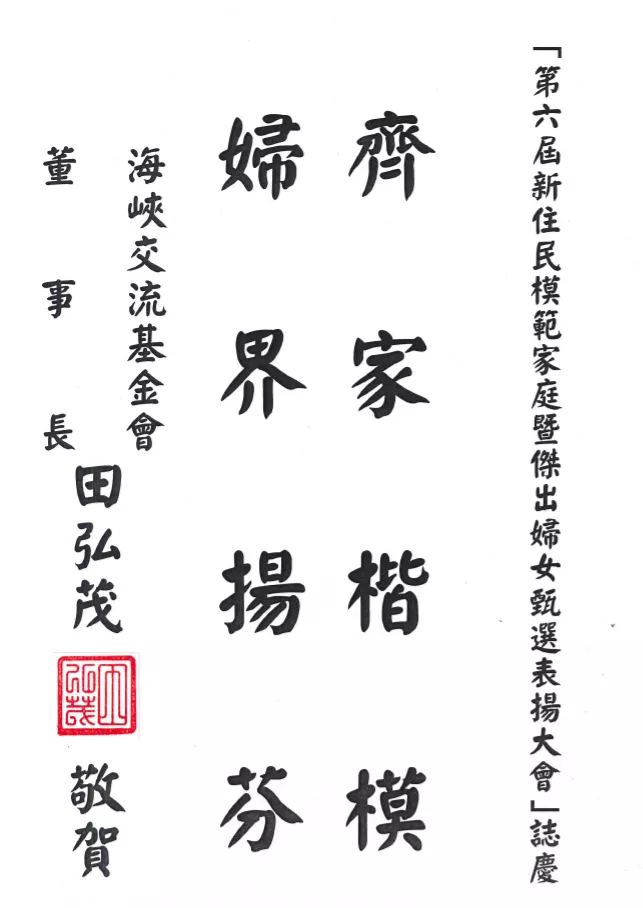 「第六屆新住民模範家庭暨傑出婦女甄選表揚大會」誌慶
齊家楷模
婦界揚芬
海峽交流基金會
董事長
田弘茂
田弘茂
敬賀